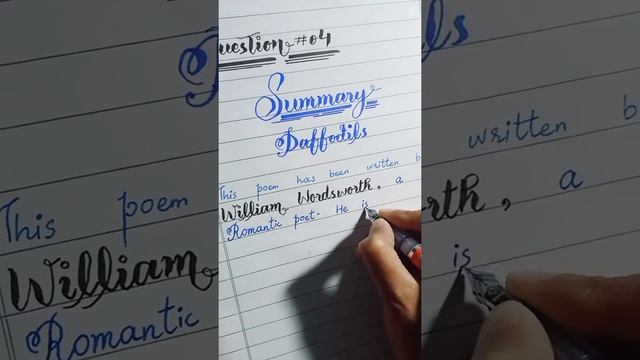 Question #04
Summary
Daffodils
This poem has been written b
William Wordsworth, a
Romantic poet. He is